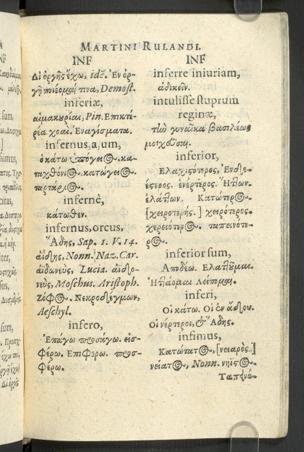 MARTINI RULANDI.
INF
Δι᾽ ὀργῆς ἔχω, idē. Ἐν ὀρ-
γῇ ποιοῦμαί τινα, Demost.
inferiæ,
αἱμακυρίαι, Pin. Ἐπικτή-
ρια χοαί. Ἐναγίσματα.
infernus, a, um,
ὁ κάτω ὑπόγειος. κα-
ταχθόνιος. κατώγειος.
infernè,
κάτωθεν.
infernus, orcus,
Ἅδης, Sap. 1. V. 14.
ἀΐδης, Nonn. Naz. Car.
ἀϊδωνεύς, Lucia. ἀϊδο-
νεύς, Moschus. Aristoph.
ζόφος. Νεκροδέγμων,
Aeschyl.
infero,
Ἐπάγω προσάγω. εἰσ-
φέρω. Ἐπιφέρω. προσ-
φέρω.
INF
inferre iniuriam,
ἀδικεῖν.
intulisse stuprum
reginæ,
τὴν γυναῖκα βασιλέως
μοιχεῦσαι.
inferior,
Ἐλαχιστότερος, Ἐνδεέ-
στερος. ἐνέρτερος. Ἥττων.
ἐλάττων. Κατώτερος.
[χειροτερής.] χειρότερος.
χερειότερος. ταπεινότε-
ρος.
inferior sum,
Ἀποδέω. Ἐλαττοῦμαι.
Ἡττάομαι Λείπομαι.
inferi,
Οἱ κάτω. Οἱ ἐν ᾅδου.
Οἱ νέρτεροι, & Ἅδης.
infimus,
Κατώτατος, [νειαρός.]
νείατος, Nonn. νήϊστος.
Ταπεινό-